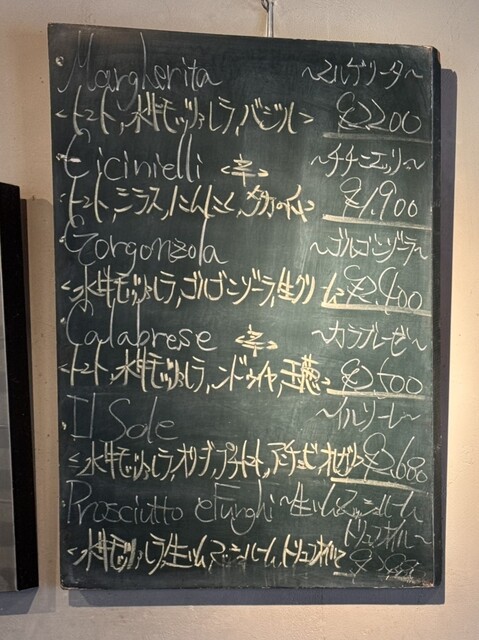 Margherita ~マルゲリータ~
<トマト,水牛モッツァレラ,バジル> ¥2200
Cicinielli <辛> ~チチニエッリ~
<トマト,シラス,にんにく, ¥1,900
Gorgonzola ~ゴルゴンゾーラ~
<水牛モッツァレラ,ゴルゴンゾーラ,生クリーム> ¥2,400
Calabrese <辛> ~カラブレーゼ~
<トマト,水牛モッツァレラ,ンドゥイヤ,玉葱> ¥2,500
Il Sole ~イルソーレ~
<水牛モッツァレラ,オリーブ,プチトマト,アンチョビ
Prosciutto e Funghi ~生ハム,マッシュルーム
トリュフオイル~
<水牛モッツァレラ,生ハム,マッシュルーム,トリュフオイル>